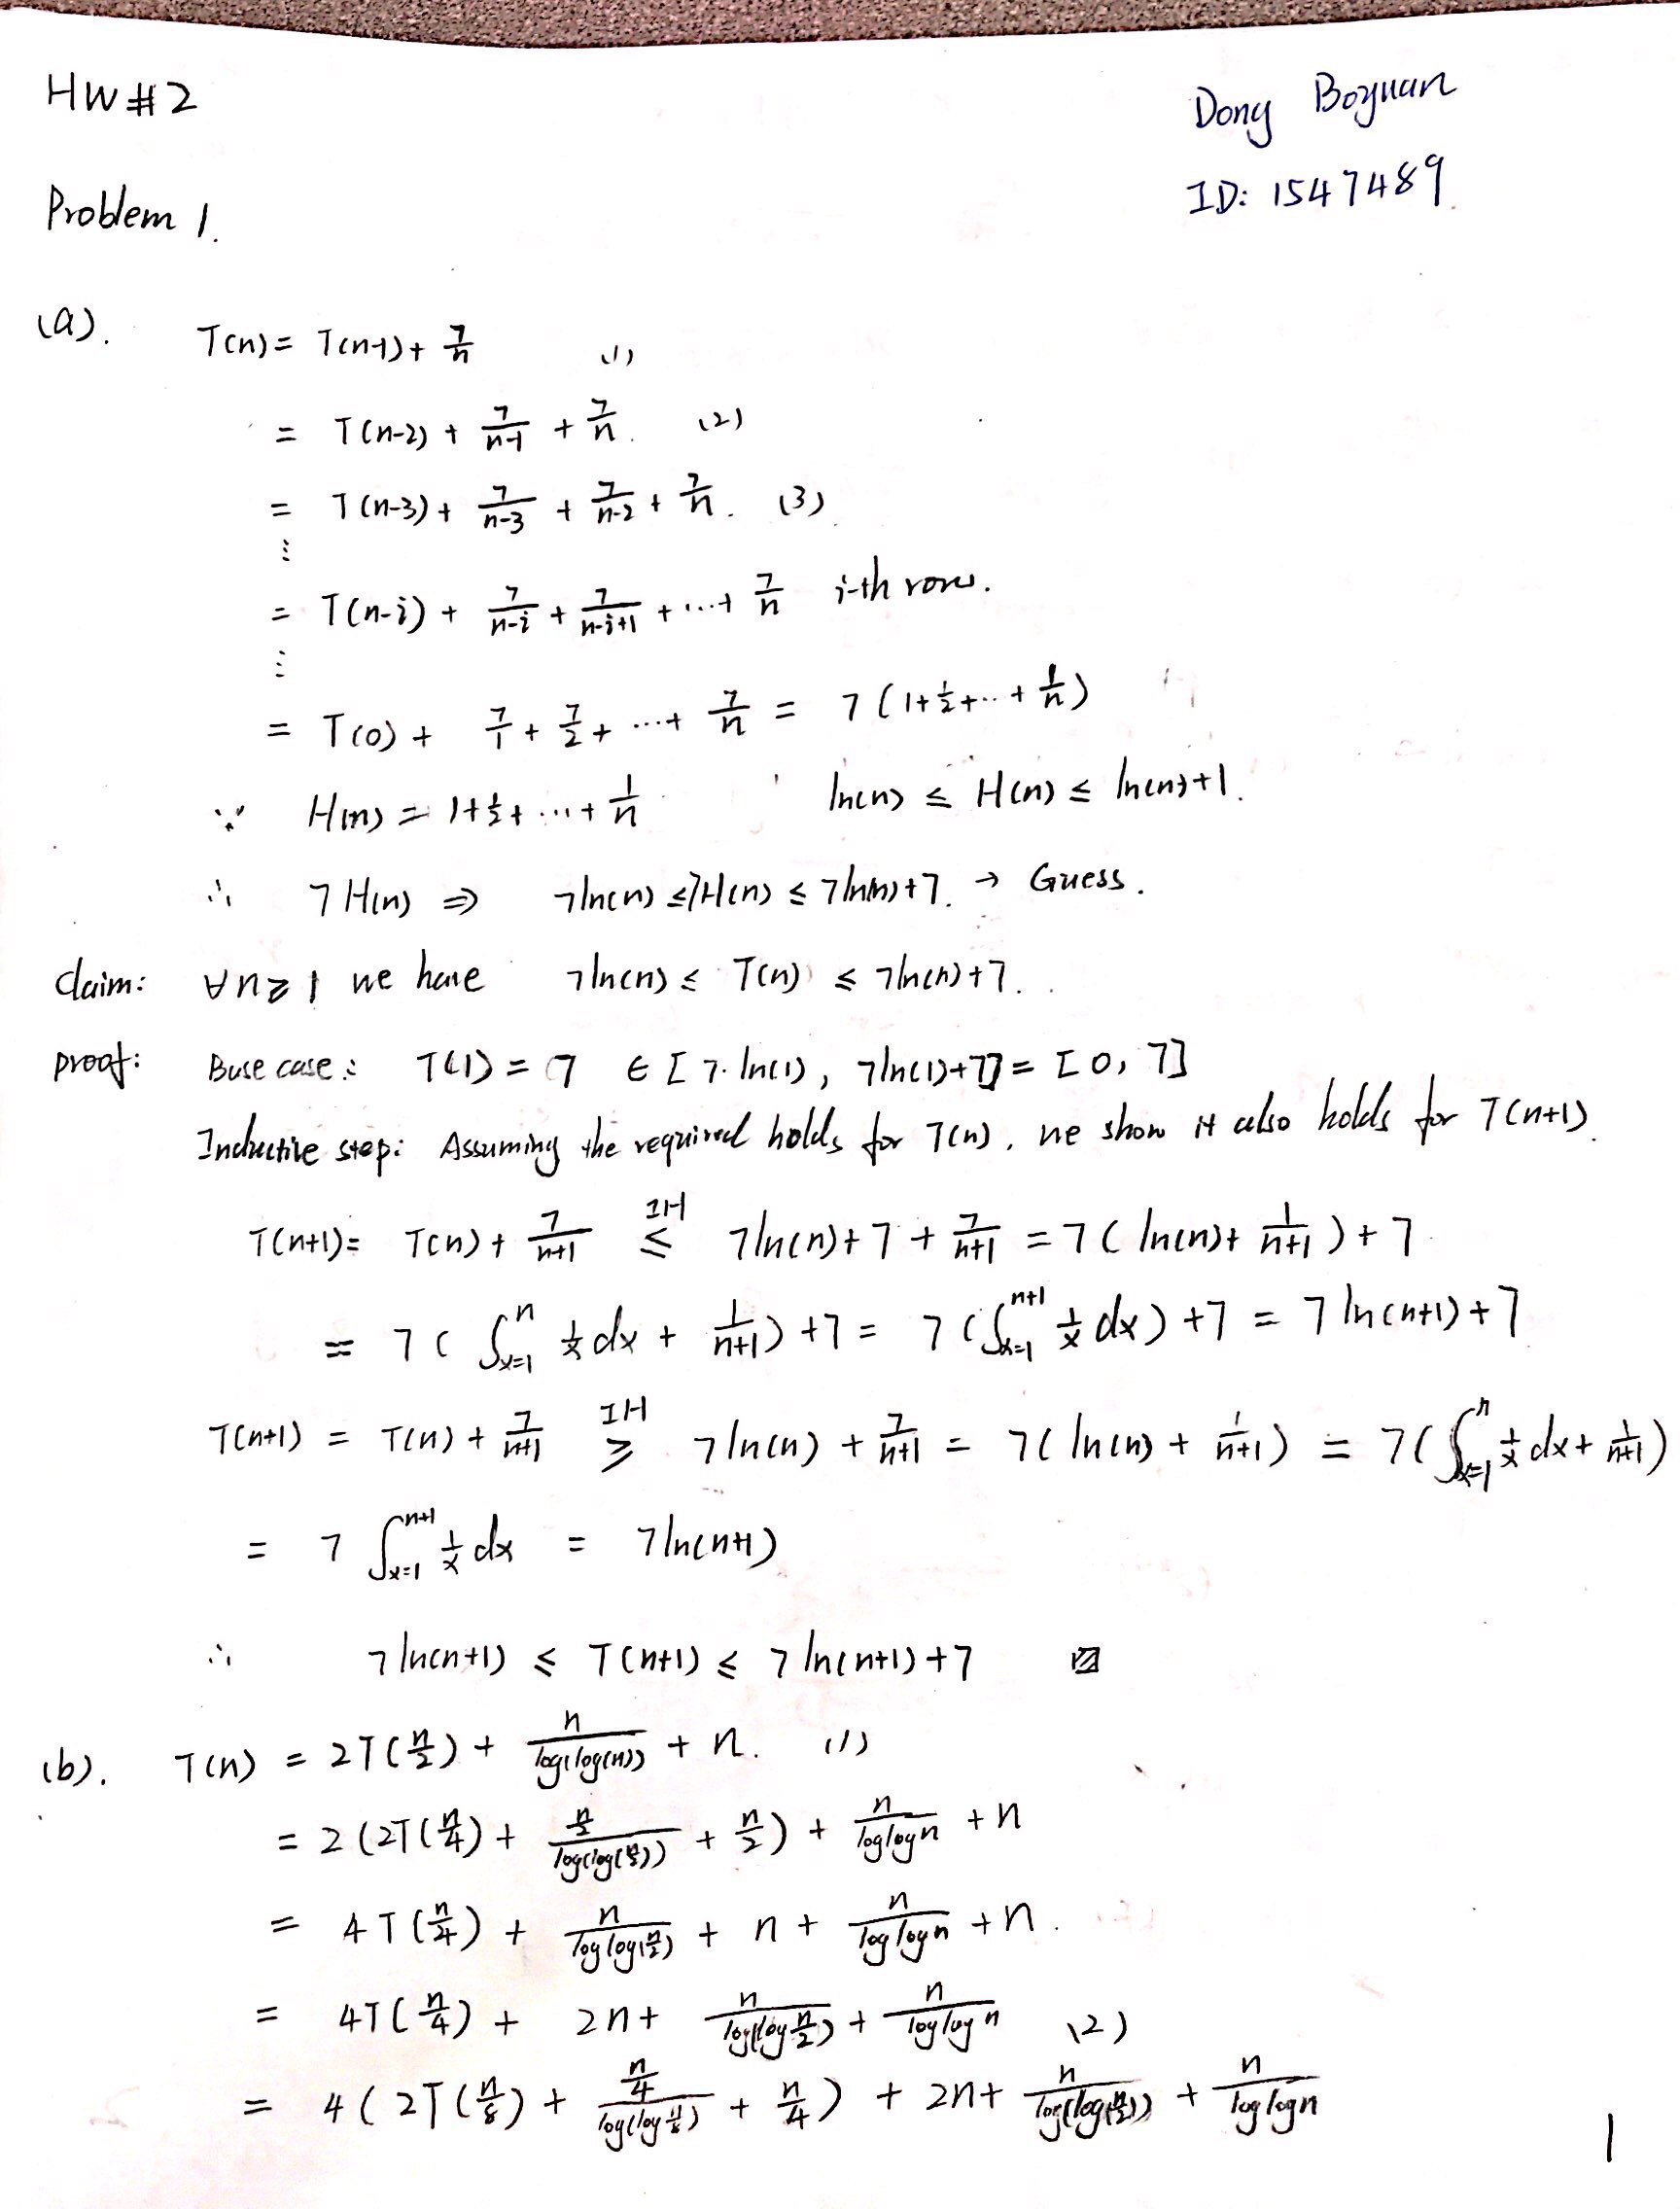 HW#2
Dong Boyuan
ID: 1547489
Problem 1.
(a). T(n) = T(n-1) + 7/n (1)
= T(n-2) + 7/(n-1) + 7/n. (2)
= T(n-3) + 7/(n-3) + 7/(n-2) + 7/n. (3)
⋮
= T(n-i) + 7/(n-i) + 7/(n-i+1) + ... + 7/n i-th rows.
⋮
= T(0) + 7/1 + 7/2 + ... + 7/n = 7(1+1/2+...+1/n)
∵ H(n) = 1+1/2+...+1/n ln(n) ≤ H(n) ≤ ln(n)+1.
∴ 7H(n) ⇒ 7ln(n) ≤ 7H(n) ≤ 7ln(n)+7. → Guess.
claim: ∀n≥1 we have 7ln(n) ≤ T(n) ≤ 7ln(n)+7.
proof: Base case: T(1) = 7 ∈ [7·ln(1), 7ln(1)+7] = [0, 7]
Inductive step: Assuming the required holds for T(n), we show it also holds for T(n+1).
T(n+1) = T(n) + 7/(n+1) ≤^IH 7ln(n)+7+7/(n+1) = 7(ln(n)+1/(n+1))+7
= 7(∫_{x=1}^{n} 1/x dx + 1/(n+1)) +7 = 7(∫_{x=1}^{n+1} 1/x dx) +7 = 7ln(n+1)+7
T(n+1) = T(n) + 7/(n+1) ≥^IH 7ln(n) + 7/(n+1) = 7(ln(n) + 1/(n+1)) = 7(∫_{x=1}^{n} 1/x dx + 1/(n+1))
= 7∫_{x=1}^{n+1} 1/x dx = 7ln(n+1)
∴ 7ln(n+1) ≤ T(n+1) ≤ 7ln(n+1)+7
(b). T(n) = 2T(n/2) + n/log(log(n)) + n. (1)
= 2(2T(n/4) + (n/2)/log(log(n/2)) + n/2) + n/loglogn + n
= 4T(n/4) + n/loglog(n/2) + n + n/loglogn + n.
= 4T(n/4) + 2n + n/log(log n/2) + n/loglogn (2)
= 4(2T(n/8) + (n/4)/log(log n/8) + n/4) + 2n + n/log(log(n/2)) + n/loglogn
1